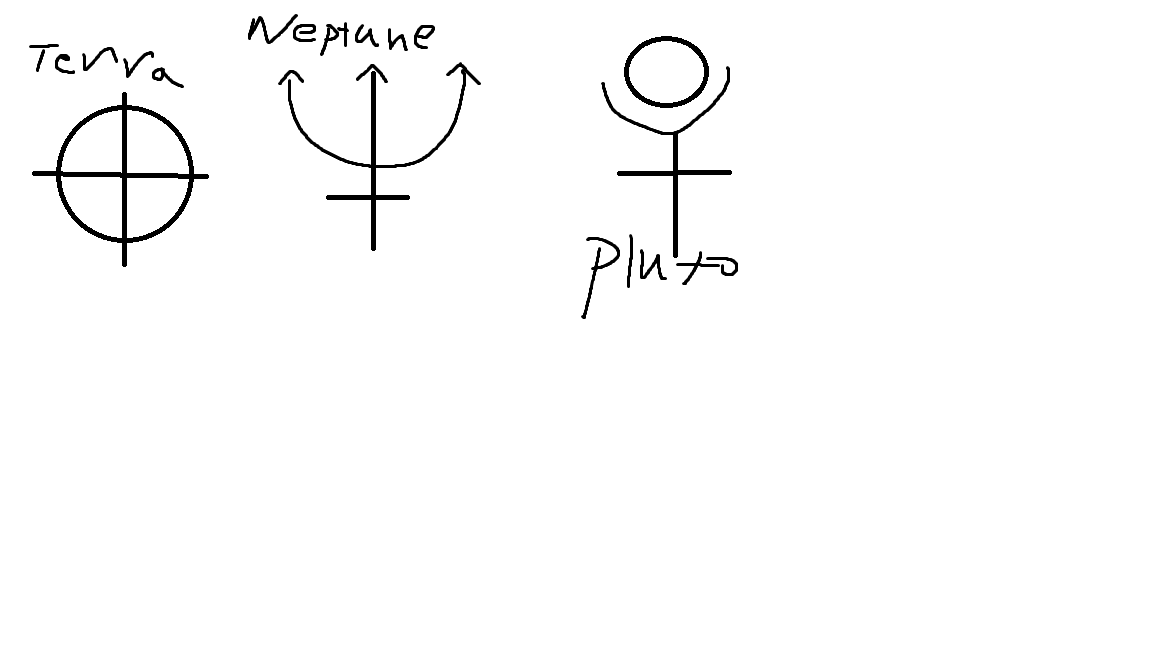 Terra
Neptune
Pluto